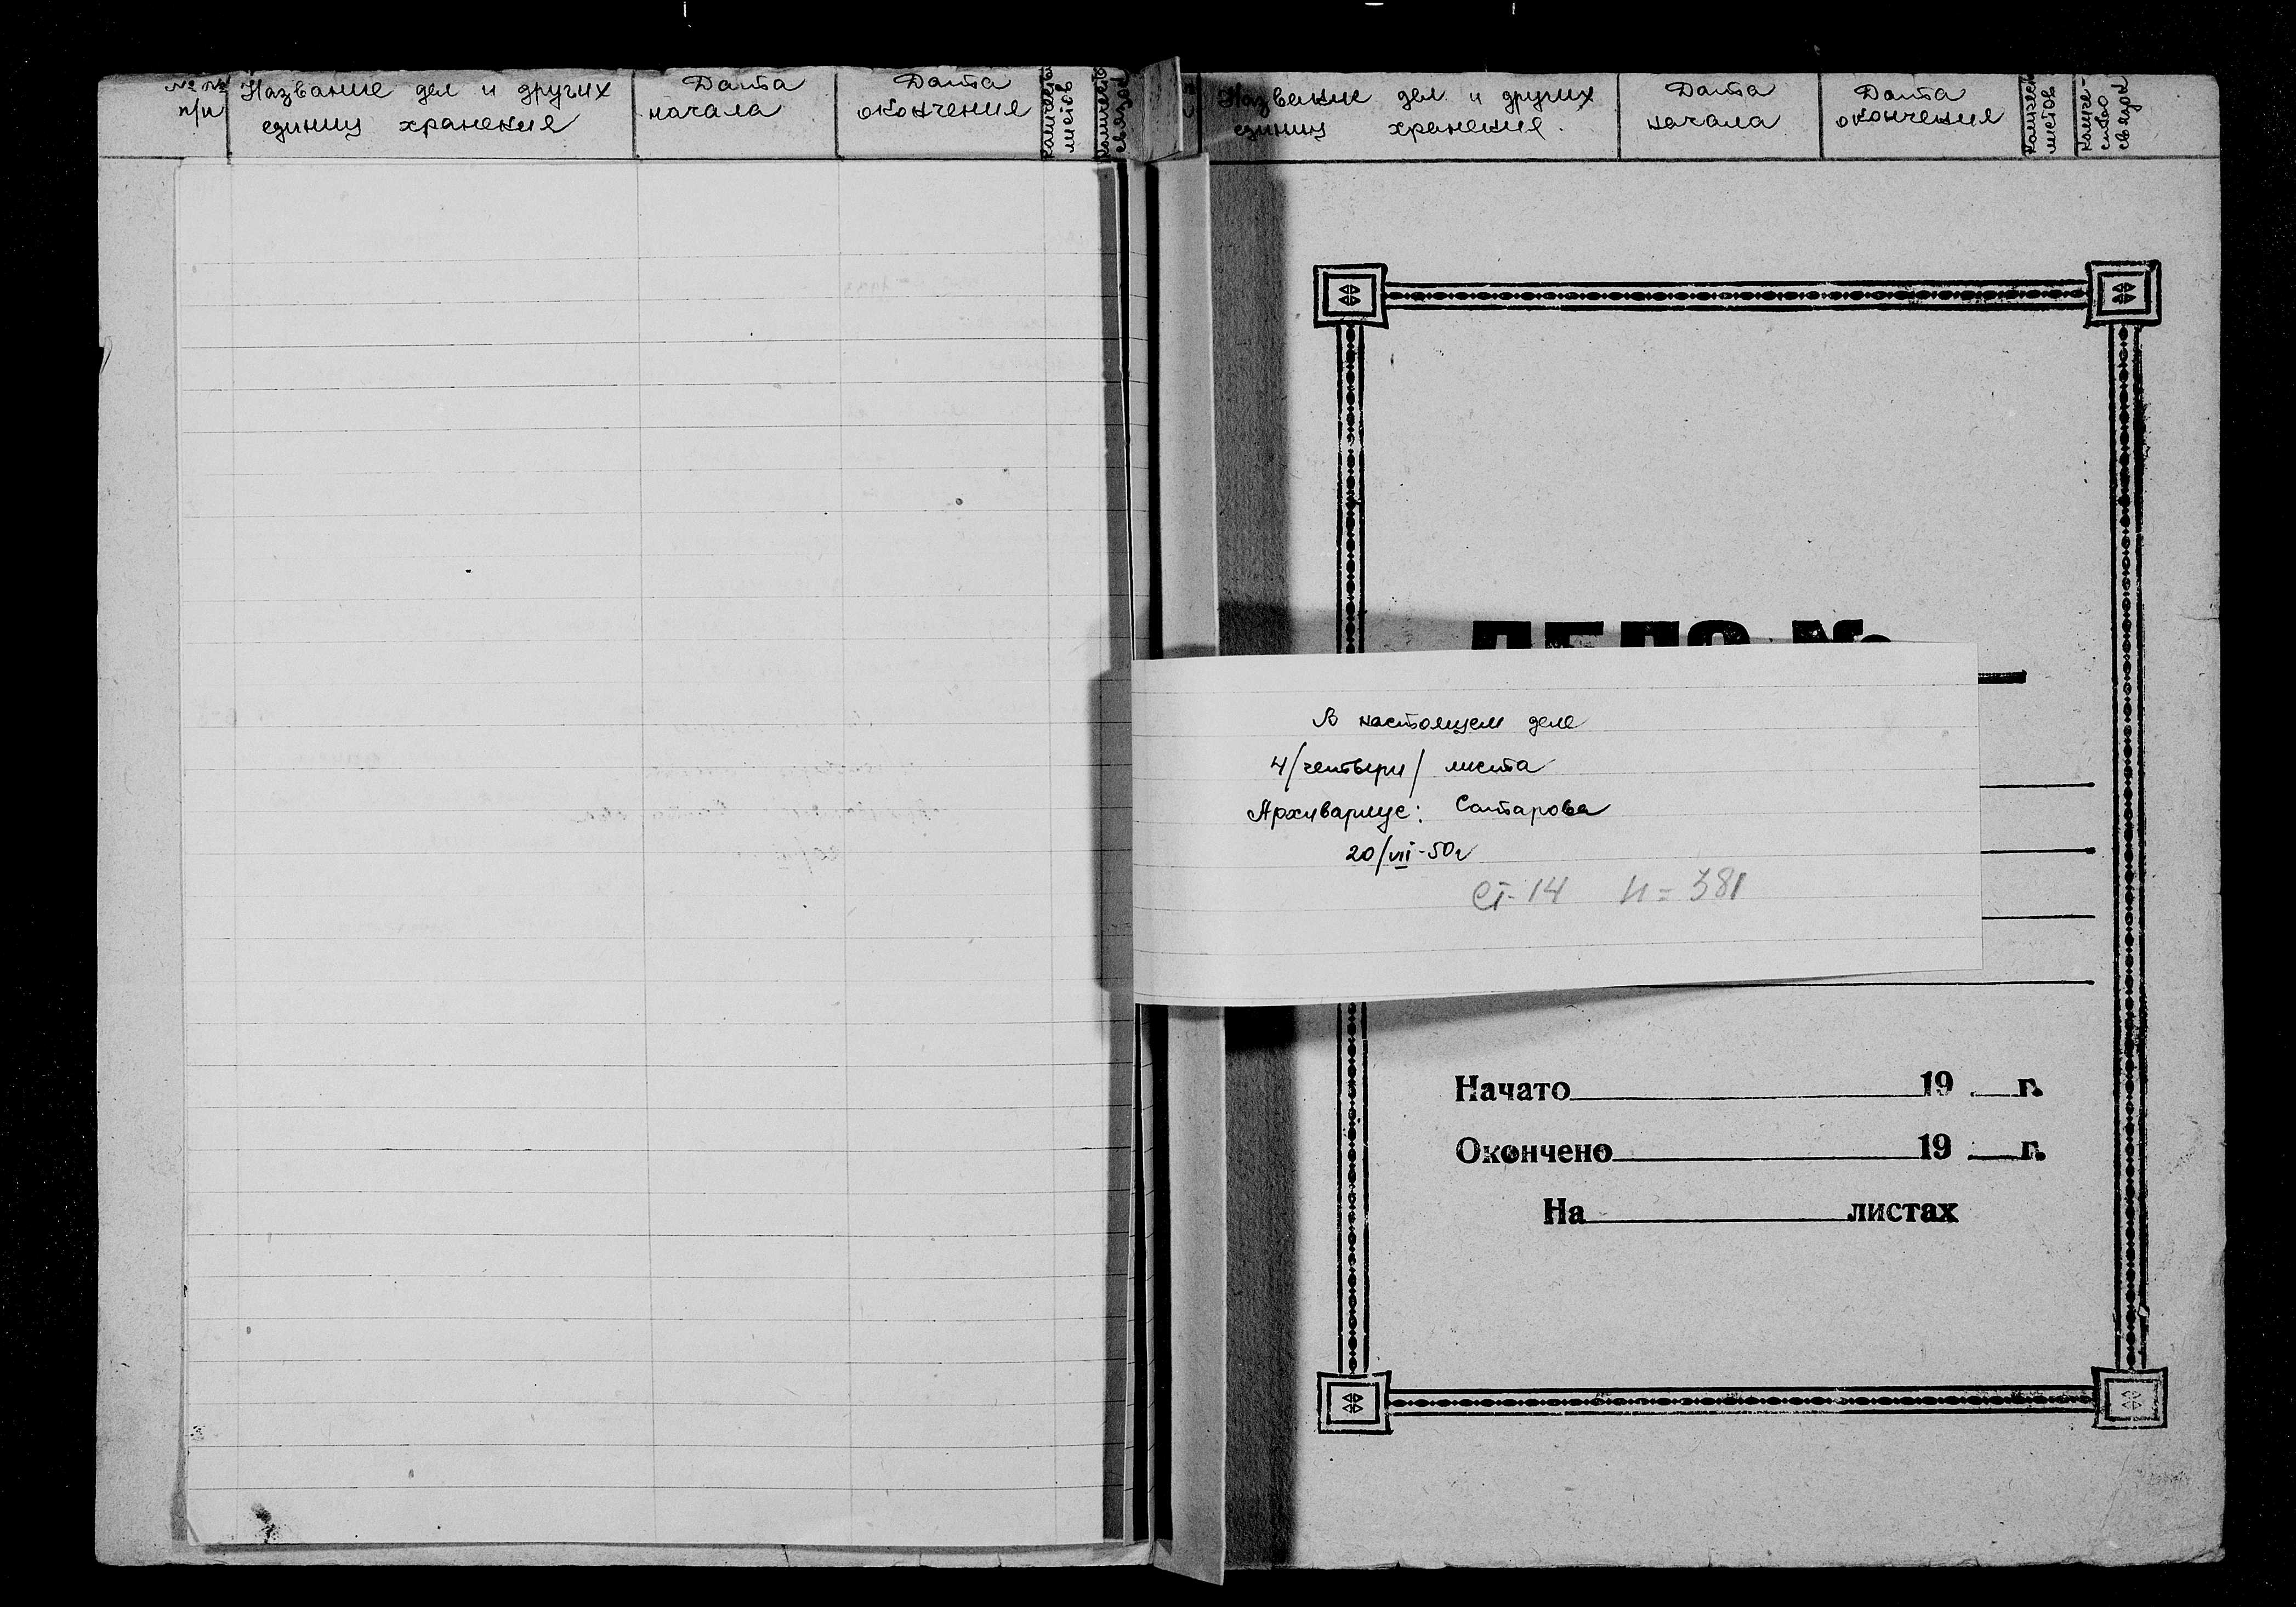 №№ п/п
Название дел и других
единиц хранения
Дата
начала
Дата
окончения
Количество
листов
Количество
связок
Название дел и других
единиц хранения.
Дата
начала
Дата
окончения
листов
Количе-
ство
связок
ДЕЛО №
В настоящем деле
4/четыри/ листа
Архивариус: Сатарова
20/VII-50г
Ст-14 И=381
Начато 19 г.
Окончено 19 г.
На листах